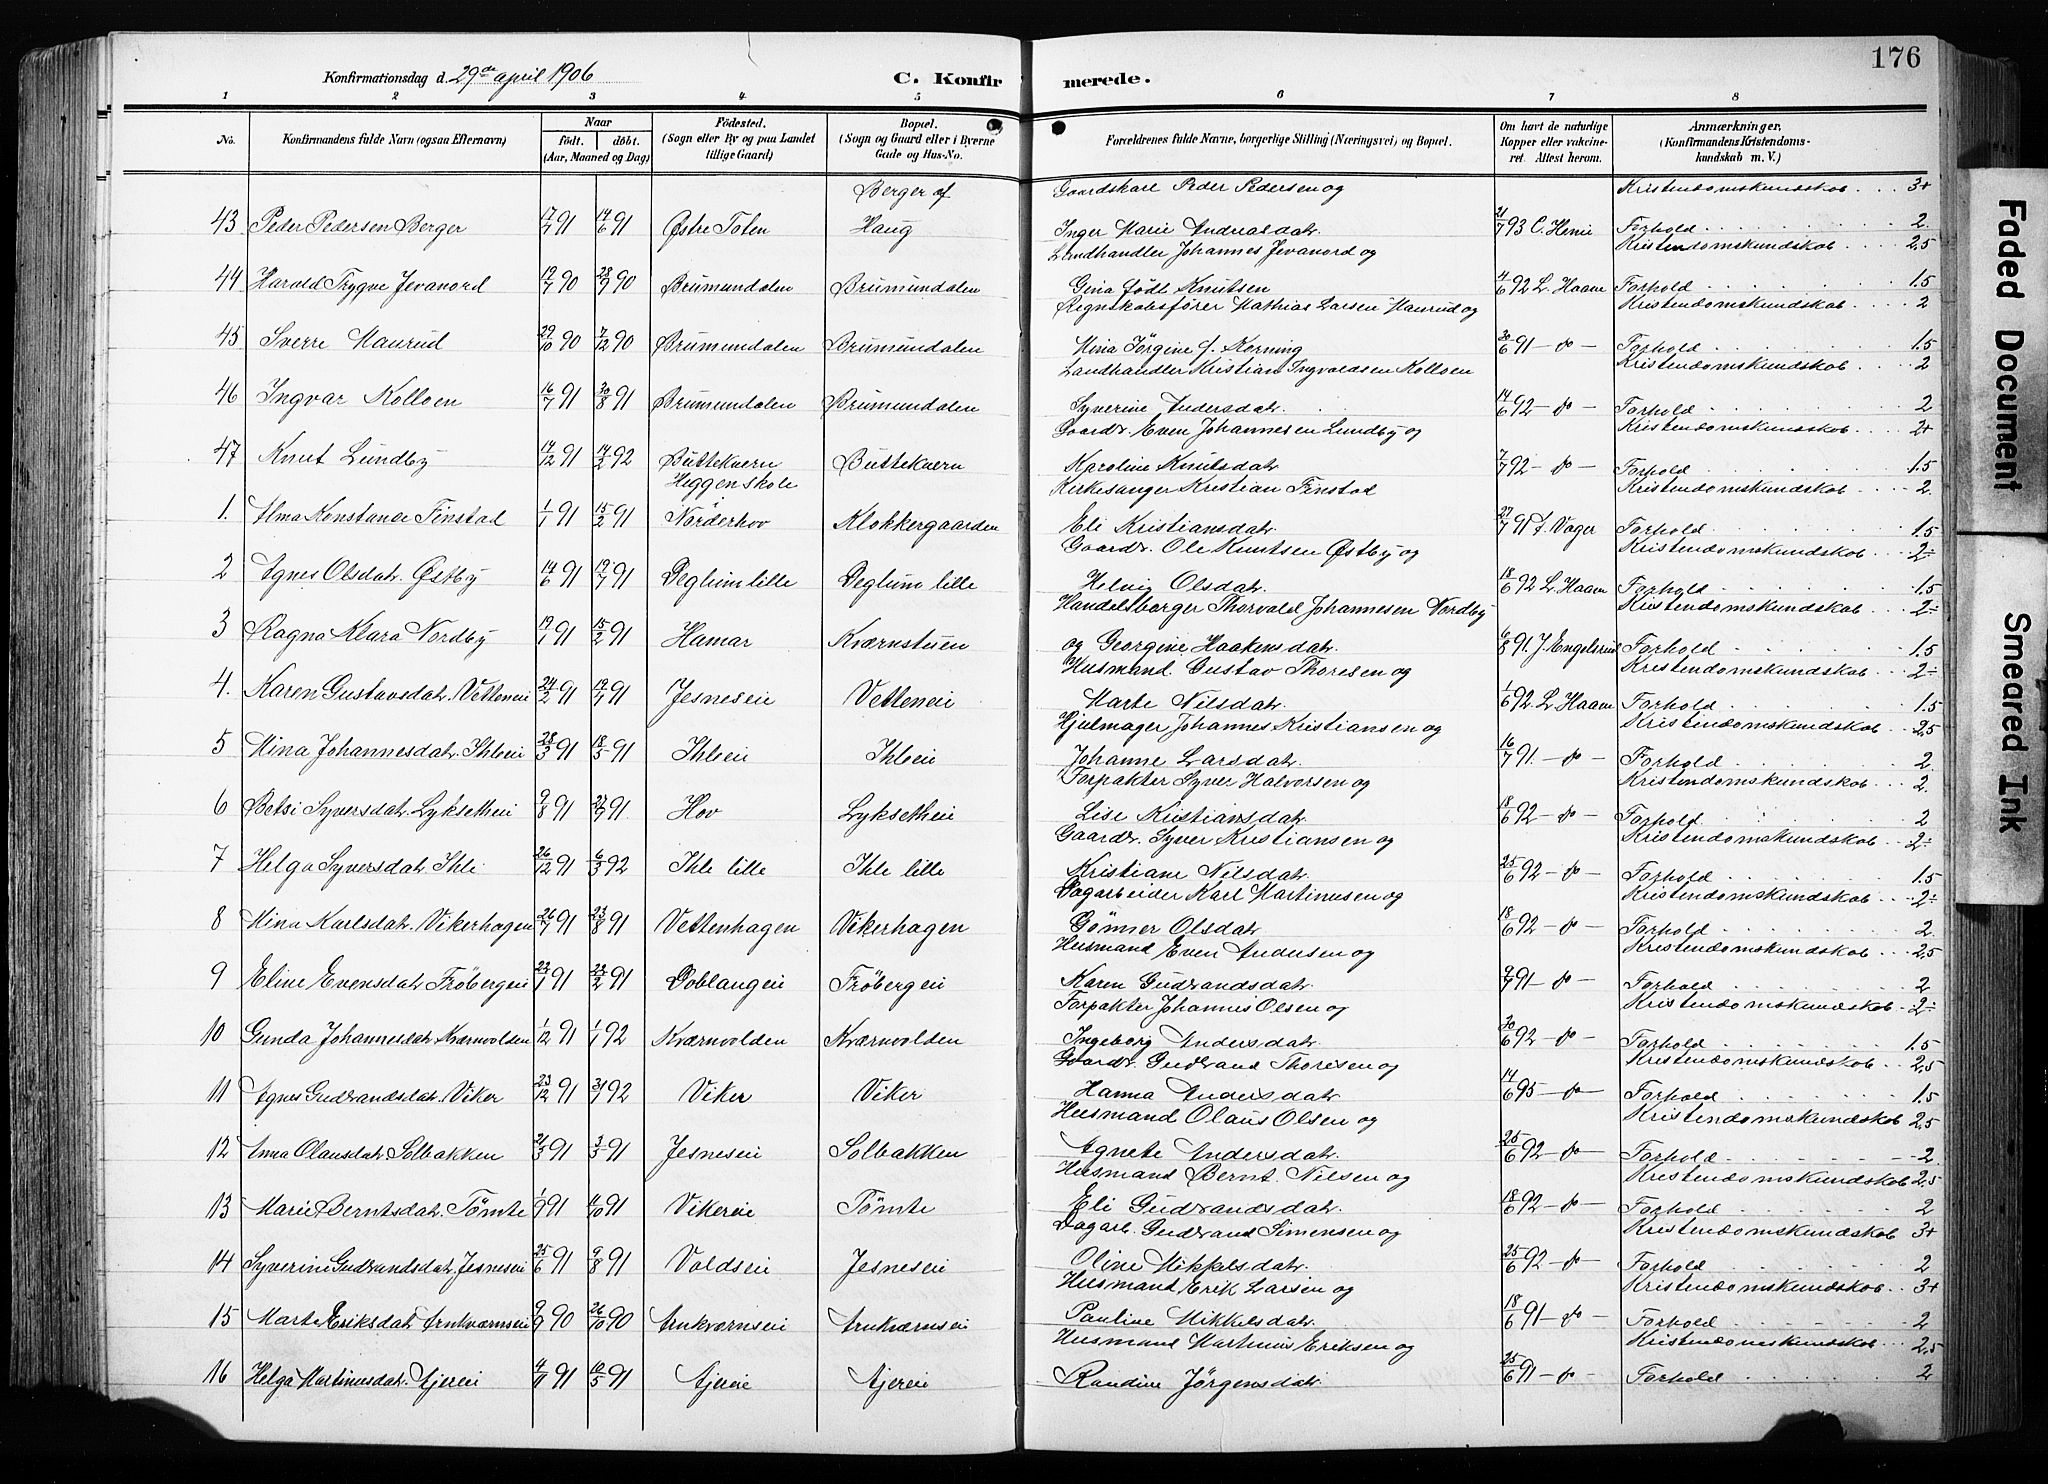 176
Konfirmationsdag d. 29de april 1906
C. Konfirmerede.
1 2 3 4 5 6 7 8
No. Konfirmandens fulde Navn (ogsaa Efternavn) Naar født. døbt. (Aar, Maaned og Dag) Fødested. (Sogn eller By og paa Landet tillige Gaard) Bopæl. (Sogn og Gaard eller i Byerne Gade og Hus-No. Forældrenes fulde Navne, borgerlige Stilling (Næringsvei) og Bopæl. Om havt de naturlige Kopper eller vaccineret. Attest herom. Anmærkninger. (Konfirmandens Kristendomskundskab m. V.)
Berger af Gaardskarl Peder Pedersen og Kristendomskundskab 3+
43 Peder Pedersen Berger 17/4 91 14/6 91 Østre Toten Haug Inger Marie Andreasdatr. 21/7 93 C. Henie Forhold 2
Landhandler Johannes Jevanord og Kristendomskundskab 2,5
44 Harald Trygve Jevanord 19/7 90 28/9 90 Brumundalen Brumundalen Gina født Knutsen 4/6 92 L. Haam Forhold 1.5
Regnskabsfører Mathias Larsen Maurud og Kristendomskundskab 2
45 Sverre Maurud 29/10 90 7/12 90 Brumundalen Brumundalen Mina Jörgine f. Korning 30/6 91 - do - Forhold 1.5
Landhandler Kristian Ingvaldsen Kolloen Kristendomskundskab 2
46 Ingvar Kolloen 16/7 91 30/8 91 Brumundalen Brumundalen Syverine Andersdatr. 14/6 92 - do - Forhold 2
Gaardr. Even Johannesen Lundby og Kristendomskundskab 2+
47 Knut Lundby 17/12 91 14/2 92 Buttekvern Buttekvern Karoline Knutsdatr 7/7 92 - do - Forhold 1.5
Heggen skole Kirkesanger Kristian Finstad Kristendomskundskab 2
1. Alma Konstance Finstad 1/1 91 15/2 91 Norderhov Klokkergaarden Eli Kristiansdatr. 27/7 91 f. Vager Forhold 1.5
Gaardr. Ole Knutsen Østby og Kristendomskundskab 2÷
2 Agnes Olsdatr. Østby 14/6 91 19/7 91 Deglum lille Deglum lille Helvig Olsdatr. 18/6 92 L. Haam Forhold 1.5
Handelsborger Thorvald Johannesen Nordby Kristendomskundskab 2÷
3 Ragna Klara Nordby 19/1 91 15/2 91 Hamar Kværnstuen og Georgine Haakensdatr. 6/8 91. J. Engelsrud Forhold 1.5
Husmand Gustav Thoresen og Kristendomskundskab 2÷
4. Karen Gustavsdatr. Vetteneie 24/2 91 19/4 91 Jesneseie Vetteneie Marte Nilsdatr. 1/6 92 L. Haam Forhold 1.5
Hjulmager Johannes Kristiansen og Kristendomskundskab 2,5
5 Mina Johannesdatr. Ihleeie 28/3 91 18/5 91 Ihleeie Ihleeie Johanne Larsdatr. 16/7 91. - do - Forhold 2
Forpakter Syver Halvorsen og Kristendomskundskab 2.
6 Betsi Syversdatr. Lykseteie 9/8 91 27/9 91 Hov Lykseteie Lise Kristiansdatr. 18/6 92 - do - Forhold 2
Gaardr. Syver Kristiansen og Kristendomskundskab 2÷
7 Helga Syversdatr. Ihle 26/12 91 6/3 92 Ihle lille Ihle lille Kristiane Nilsdatr. 25/6 92 - do - Forhold 1.5
Dagarbeider Karl Martinusen og Kristendomskundskab 2÷
8 Mina Karlsdatr. Vikerhagen 26/7 91 23/8 91 Vettenhagen Vikerhagen Gönner Olsdatr. 18/6 92 - do - Forhold 2.
Husmand Even Andersen og Kristendomskundskab 2,5
9 Eline Evensdatr Fröbergeie 22/1 91 22/2 91 Doblangeie Fröbergeie Karen Gudrandsdatr. 9/7 91 - do - Forhold 2
Forpakter Johannes Olsen og Kristendomskundskab 2÷
10 Gunda Johannesdatr Kværnvolden 1/12 91 1/1 92 Kværnvolden Kværnvolden Ingeborg Andersdatr. 30/6 92 - do - Forhold 1.5
Gaardr. Gudrand Thoresen og Kristendomskundskab 2,5
11 Agnes Gudrandsdatr. Viker 23/12 91 31/1 92 Viker Viker Hanna Andersdatr. 14/6 95 - do - Forhold 1.5
Husmand Olaus Olsen og Kristendomskundskab 2,5
12 Anna Olausdatr. Solbakken 21/3 91 3/5 91 Jesneseie Solbakken Agnete Andersdatr. 25/6 92 - do - Forhold 2.
Husmand Bernt Nilsen og Kristendomskundskab 2,5
13 Marie Berntsdatr. Tömte 1/9 91 4/10 91 Vikereie Tömte Eli Gudrandsdatr. 18/6 92 - do - Forhold 2
Dagarb. Gudrand Simensen og Kristendomskundskab 3+
14 Syverine Gudrandsdatr. Jesneseie 25/6 91 9/8 91 Voldseie Jesneseie Oline Mikkelsdatr. 25/6 92 - do - Forhold 2
Husmand Erik Larsen og Kristendomskundskab 3+
15 Marte Eriksdatr Arnkværnseie 9/9 90 26/10 90 Arnkværnseie Arnkværnseie Pauline Mikkelsdatr. 18/6 91 - do - Forhold 2
Husmand Martinus Eriksen og Kristendomskundskab 2,5
16 Helga Martinusdatr. Ajereie 4/4 91 10/5 91 Ajereie Ajereie Randine Jörgensdatr. 25/6 91 - do - Forhold 2
Faded Document
Smeared Ink